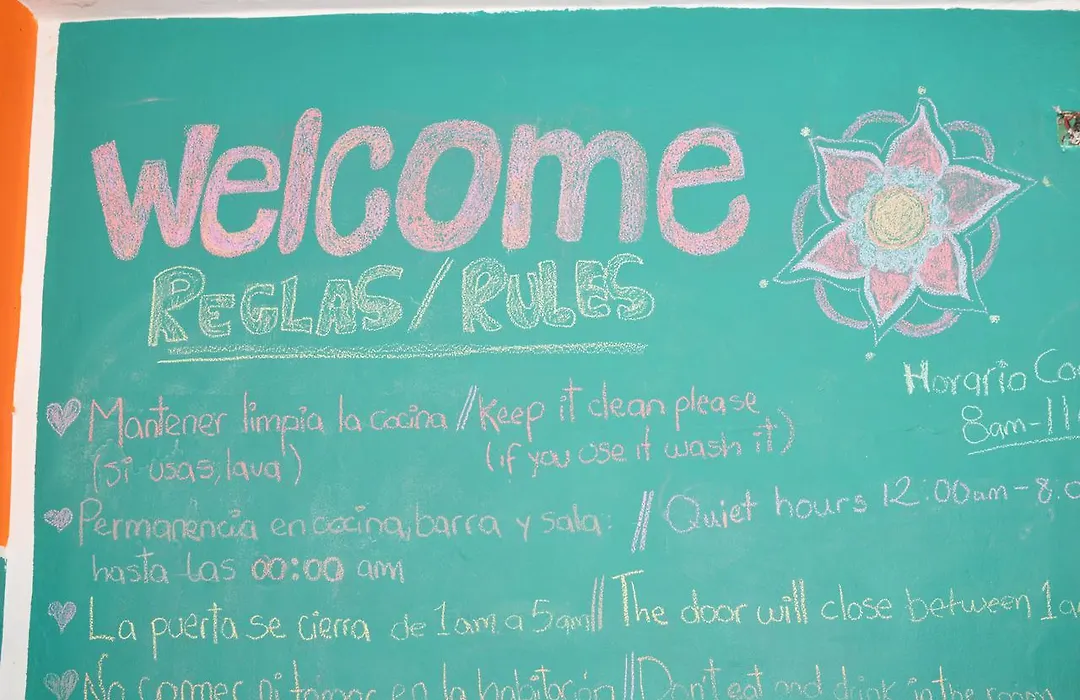 Welcome
REGLAS/RULES
Horario
8am-11
Mantener limpia la cocina // Keep it clean please
(si usas, lava) (if you use it wash it)
Permanencia en cocina, barra y sala: // Quiet hours 12:00am - 8:0
hasta las 00:00 am
La puerta se cierra de 1am a 5am // The door will close between 1a
No comer ni tomar en la habitación // Don't eat and drink in the